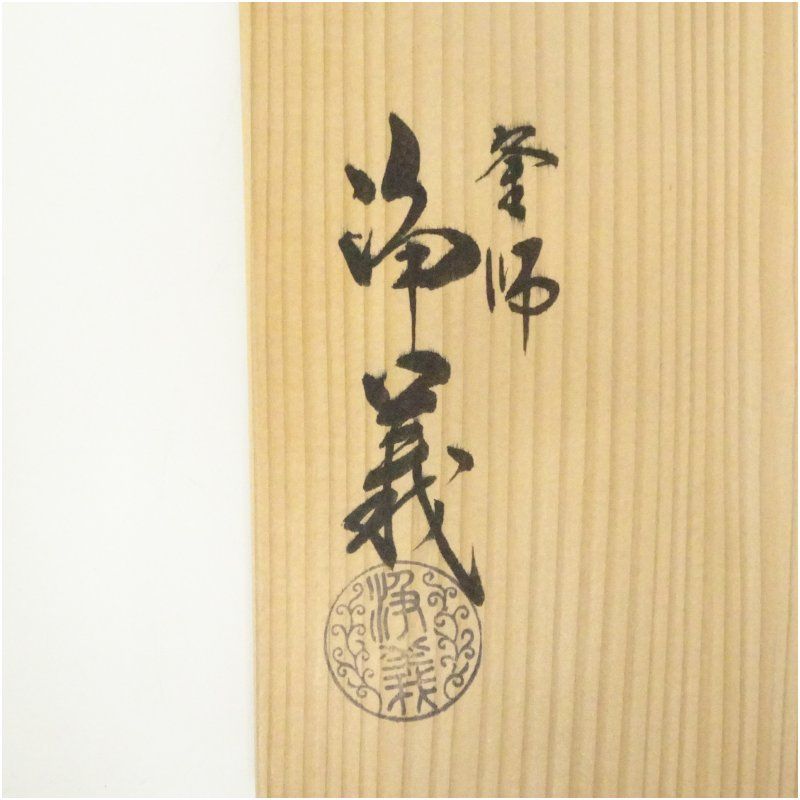 釜師
浄義
浄義